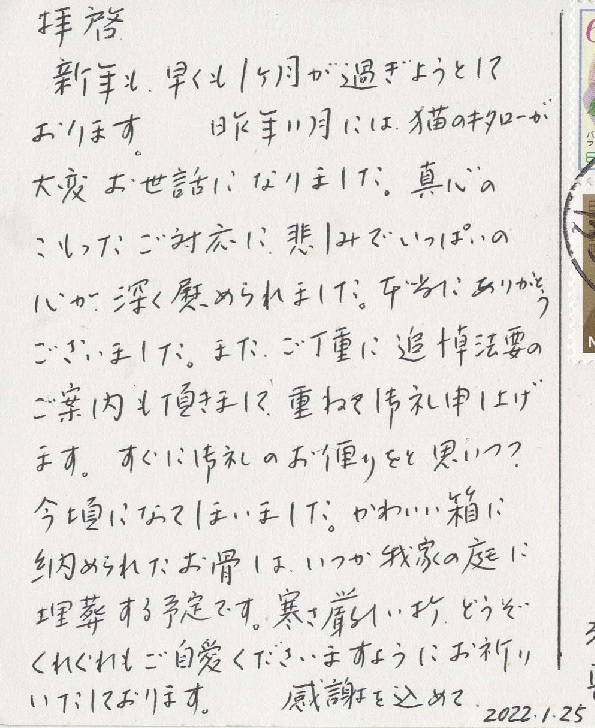 拝啓
新年も、早くも1ケ月が過ぎようとして
おります。 昨年11月には、猫のキタローが
大変お世話になりました。真心の
こもったご対応に、悲しみでいっぱいの
心が、深く慰められました。本当にありがとう
ございました。また、ご丁重に追悼法要の
ご案内も頂きまして、重ねて御礼申し上げ
ます。すぐに御礼のお便りをと思いつつ
今頃になってしまいました。かわいい箱に
納められたお骨は、いつか我家の庭に
埋葬する予定です。寒さ厳しい折、どうぞ
くれぐれもご自愛くださいますようにお祈り
いたしております。 感謝を込めて
2022.1.25